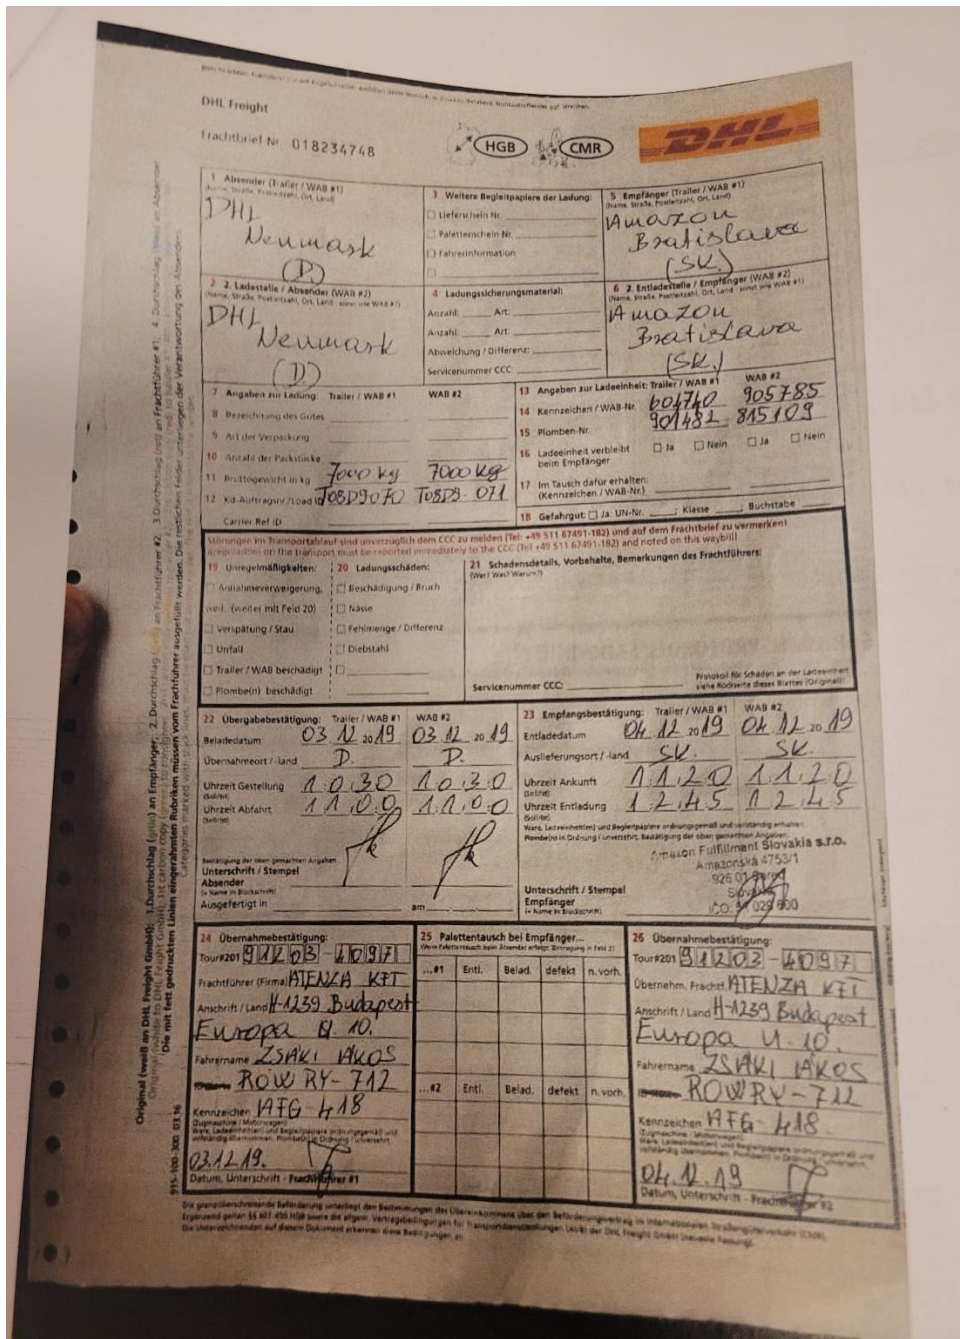 DHL Freight
Frachtbrief Nr. 018234748
HGB
CMR
DHL
1 Absender (Trailer / WAB #1)
(Name, Straße, Postleitzahl, Ort, Land)
DHL
Neumark
(D.)
3 Weitere Begleitpapiere der Ladung:
Lieferschein Nr.
Palettenschein Nr.
Fahrerinformation
5 Empfänger (Trailer / WAB #1)
(Name, Straße, Postleitzahl, Ort, Land)
Amazon
Bratislava
(SK.)
2 2. Ladestelle / Absender (WAB #2)
(Name, Straße, Postleitzahl, Ort, Land - sonst wie WAB #1)
DHL
Neumark
(D.)
4 Ladungssicherungsmaterial:
Anzahl: Art:
Anzahl: Art:
Abweichung / Differenz:
Servicenummer CCC:
6 2. Entladestelle / Empfänger (WAB #2)
(Name, Straße, Postleitzahl, Ort, Land - sonst wie WAB #1)
Amazon
Bratislava
(SK.)
7 Angaben zur Ladung: Trailer / WAB #1 WAB #2
8 Bezeichnung des Gutes
9 Art der Verpackung
10 Anzahl der Packstücke
11 Bruttogewicht in kg 7000 kg 7000 kg
12 Kd-Auftragsnr./Load ID T08D9070 T08D9-071
Carrier Ref ID
13 Angaben zur Ladeeinheit: Trailer / WAB #1 WAB #2
14 Kennzeichen / WAB-Nr. 604740 905785
15 Plomben-Nr. 901482 815109
16 Ladeeinheit verbleibt beim Empfänger Ja Nein Ja Nein
17 Im Tausch dafür erhalten:
(Kennzeichen / WAB-Nr.)
18 Gefahrgut: Ja: UN-Nr. ; Klasse ; Buchstabe
Störungen im Transportablauf sind unverzüglich dem CCC zu melden (Tel: +49 511 67491-182) und auf dem Frachtbrief zu vermerken!
Irregularities on the transport must be reported immediately to the CCC (Tel +49 511 67491-182) and noted on this waybill!
19 Unregelmäßigkeiten:
Annahmeverweigerung,
weil: (weiter mit Feld 20)
Verspätung / Stau
Unfall
Trailer / WAB beschädigt
Plombe(n) beschädigt
20 Ladungsschäden:
Beschädigung / Bruch
Nässe
Fehlmenge / Differenz
Diebstahl
21 Schadensdetails, Vorbehalte, Bemerkungen des Frachtführers:
(Wer? Was? Warum?)
Servicenummer CCC:
Protokoll für Schäden an der Ladeeinheit
siehe Rückseite dieses Blattes (Original)!
22 Übergabebestätigung: Trailer / WAB #1 WAB #2
Beladedatum 03.12.2019 03.12.2019
Übernahmeort / -land D. D.
Uhrzeit Gestellung 10:30 10:30
(Soll/Ist)
Uhrzeit Abfahrt 11:00 11:00
(Soll/Ist)
Bestätigung der oben gemachten Angaben
Unterschrift / Stempel
Absender
(+ Name in Blockschrift)
Ausgefertigt in am
23 Empfangsbestätigung: Trailer / WAB #1 WAB #2
Entladedatum 04.12.2019 04.12.2019
Auslieferungsort / -land SK. SK.
Uhrzeit Ankunft 11:20 11:20
(Soll/Ist)
Uhrzeit Entladung 12:45 12:45
(Soll/Ist)
Ware, Ladeeinheit(en) und Begleitpapiere ordnungsgemäß und vollständig erhalten.
Plombe(n) in Ordnung / unversehrt. Bestätigung der oben gemachten Angaben.
Amazon Fulfillment Slovakia s.r.o.
Amazonská 4753/1
926 01 Sereď
Slovakia
Unterschrift / Stempel
Empfänger
(+ Name in Blockschrift)
24 Übernahmebestätigung:
Tour#201 91203-4097
Frachtführer (Firma) ATENZA KFT
Anschrift / Land H-1239 Budapest
Europa U. 10.
Fahrername ZSÁKI ÁKOS
ROW RY-712
Kennzeichen AFG-418
(Zugmaschine / Motorwagen)
Ware, Ladeeinheit(en) und Begleitpapiere ordnungsgemäß und
vollständig übernommen. Plombe(n) in Ordnung / unversehrt.
03.12.19.
Datum, Unterschrift - Frachtführer #1
25 Palettentausch bei Empfänger...
...#1 Entl. Belad. defekt n.vorh.
...#2 Entl. Belad. defekt n.vorh.
26 Übernahmebestätigung:
Tour#201 91203-4097
Übernehm. Frachtf. ATENZA KFT
Anschrift / Land H-1239 Budapest
Europa U. 10.
Fahrername ZSÁKI ÁKOS
ROW RY-712
Kennzeichen AFG-418.
(Zugmaschine / Motorwagen)
Ware, Ladeeinheit(en) und Begleitpapiere ordnungsgemäß und
vollständig übernommen. Plombe(n) in Ordnung / unversehrt.
04.12.19
Datum, Unterschrift - Frachtführer #2
Die grenzüberschreitende Beförderung unterliegt den Bestimmungen des Übereinkommens über den Beförderungsvertrag im internationalen Straßengüterverkehr (CMR).
Die Unterzeichnenden auf diesem Dokument erkennen diese Bedingungen an.
915-100-300 03.16
Die mit fett gedruckten Linien eingerahmten Rubriken müssen vom Frachtführer ausgefüllt werden. Die restlichen Felder unterliegen der Verantwortung des Absenders.